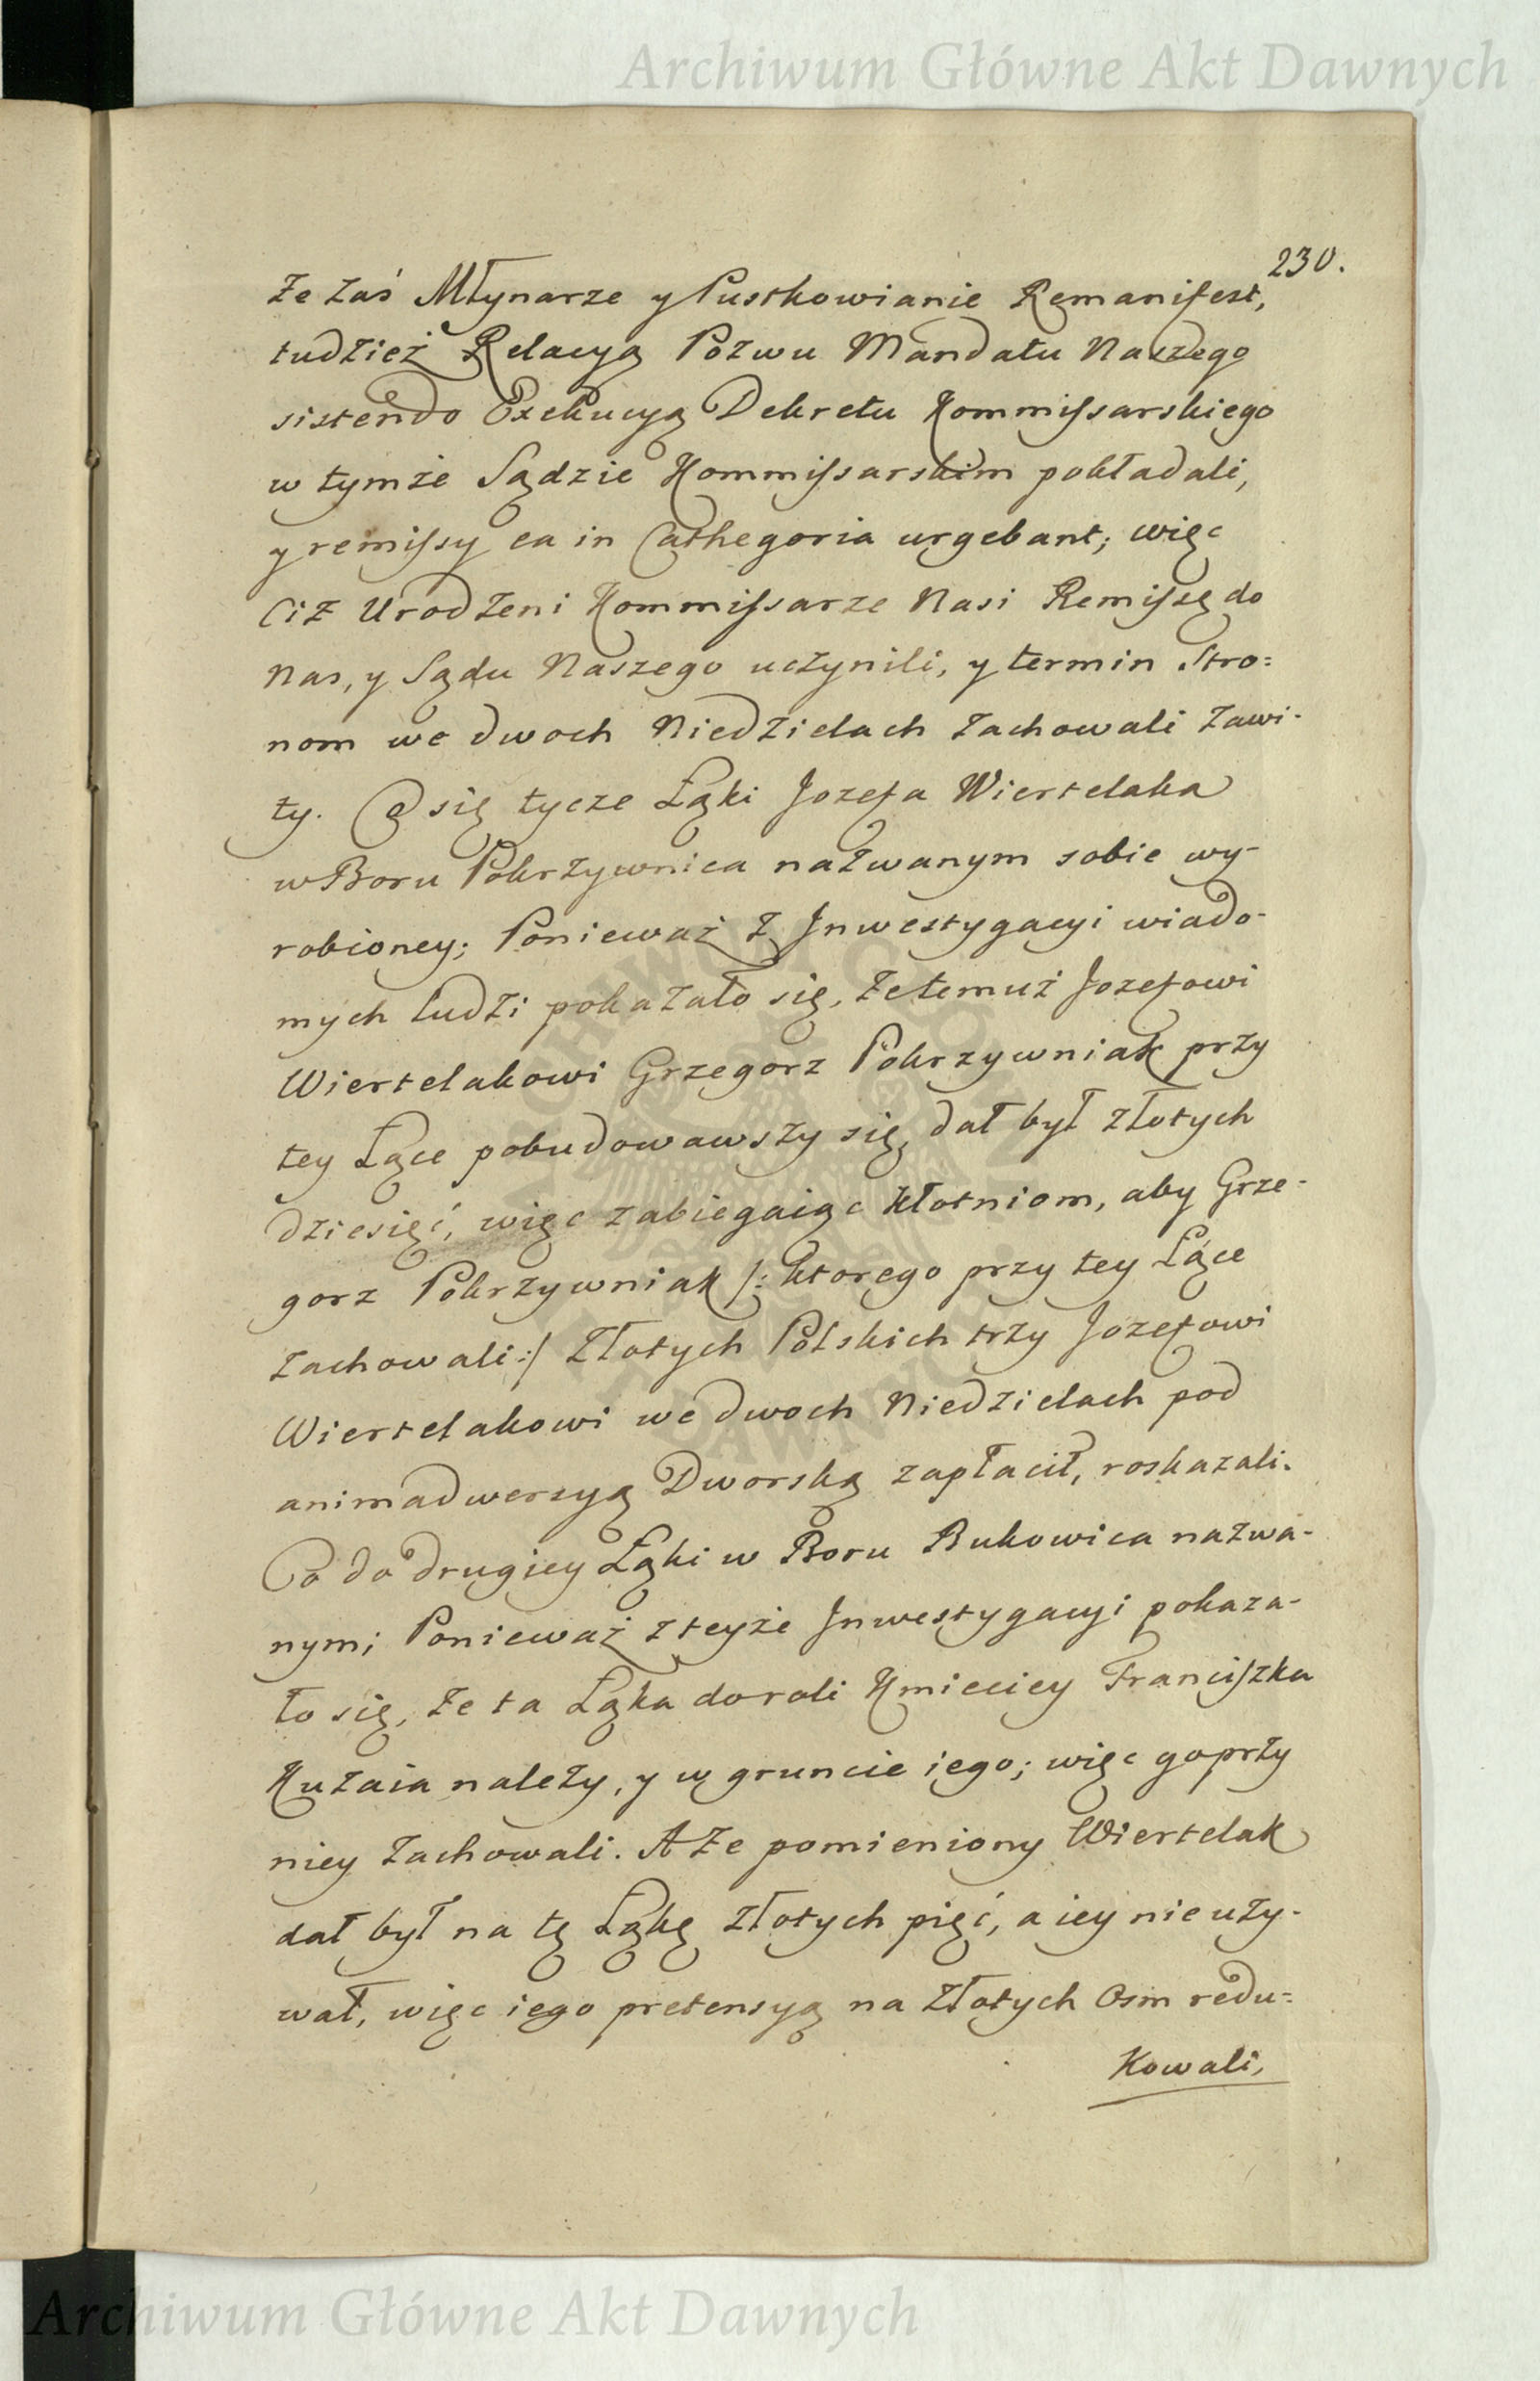 Archiwum Główne Akt Dawnych
230.
że zaś Młynarze y Pustkowianie Remanifest,
tudzież Relacyą Pozwu Mandatu Naszego
sistendo Exekucyą Dekretu Kommissarskiego
w tymże Sądzie Kommissarskim pokładali,
y remissy ea in Cathegoria urgebant; więc
Ciż Urodzeni Kommissarze Nasi Remissę do
Nas, y Sądu Naszego uczynili, y termin Stro=
nom we dwoch Niedzielach zachowali zawi-
ty. Co się tycze Łąki Jozefa Wiertelaka
w Boru Pokrzywnica nazwanym sobie wy-
robioney; Ponieważ z Jnwestygacyi wiado-
mych ludzi pokazało się, że temuż Jozefowi
Wiertelakowi Grzegorz Pokrzywniak przy
tey Łące pobudowawszy się, dał był złotych
dziesięć, więc zabiegaiąc kłotniom, aby Grze-
gorz Pokrzywniak /: ktorego przy tey Łące
zachowali :/ Złotych Polskich trzy Jozefowi
Wiertelakowi we dwoch Niedzielach pod
animadwersyą Dworską zapłacił, roskazali.
Co do drugiey Łąki w Boru Bukowica nazwa-
nym; Ponieważ z teyże Jnwestygacyi pokaza-
ło się, że ta Łąka do roli Kmieciey Franciszka
Kuzaia należy, y w gruncie iego; więc go przy
niey zachowali. A że pomieniony Wiertelak
dał był na tę Łąkę złotych pięć, a iey nie uży-
wał, więc iego pretensyą na Złotych Osm redu=
kowali,
Archiwum Główne Akt Dawnych